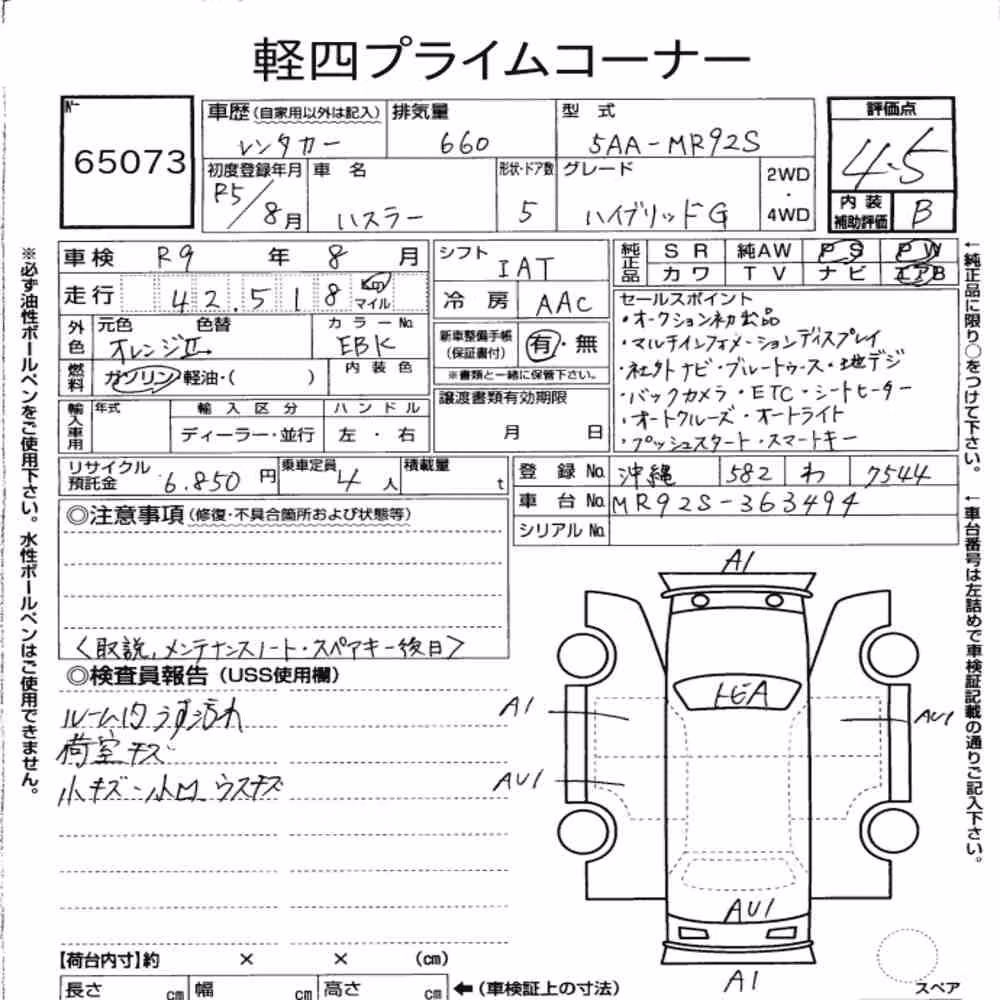 軽四プライムコーナー
No.
65073
車歴(自家用以外は記入) 排気量 型式 評価点
レンタカー 660 5AA-MR92S 4.5
初度登録年月 車名 形状・ドア数 グレード 2WD・4WD
R5/8月 ハスラー 5 ハイブリッドG
内装補助評価 B
車検 R9年 8月
走行 42,518 km マイル
シフト IAT
冷房 AAC
純正品 SR 純AW PS PW
カワ TV ナビ エアB
外色 元色 色替 カラーNo.
オレンジII EBK
燃料 ガソリン・軽油・( ) 内装色
新車整備手帳(保証書付) 有・無
※書類と一緒に保管下さい。
セールスポイント
・オークション初出品
・マルチインフォメーションディスプレイ
・社外ナビ・ブルートゥース・地デジ
・バックカメラ・ETC・シートヒーター
・オートクルーズ・オートライト
・プッシュスタート・スマートキー
輸入車用 年式 輸入区分 ハンドル
ディーラー・並行 左・右
譲渡書類有効期限
月 日
リサイクル預託金 6.850円 乗車定員 4人 積載量 t
登録No. 沖縄 582 わ 7544
車台No. MR92S-363494
シリアルNo.
◎注意事項(修復・不具合箇所および状態等)
<取説,メンテナンスノート・スペアキー後日>
◎検査員報告(USS使用欄)
ルーム内うす汚れ
荷室キズ
小キズ・小凹 ウスキズ
A1
A1
AU1
AU1
AU1
A1
【荷台内寸】約 × × (cm)
長さ cm 幅 cm 高さ cm ←(車検証上の寸法)
スペア
※必ず油性ボールペンをご使用下さい。水性ボールペンはご使用できません。
←純正品に限り○をつけて下さい。
←車台番号は左詰めで車検証記載の通りご記入下さい。